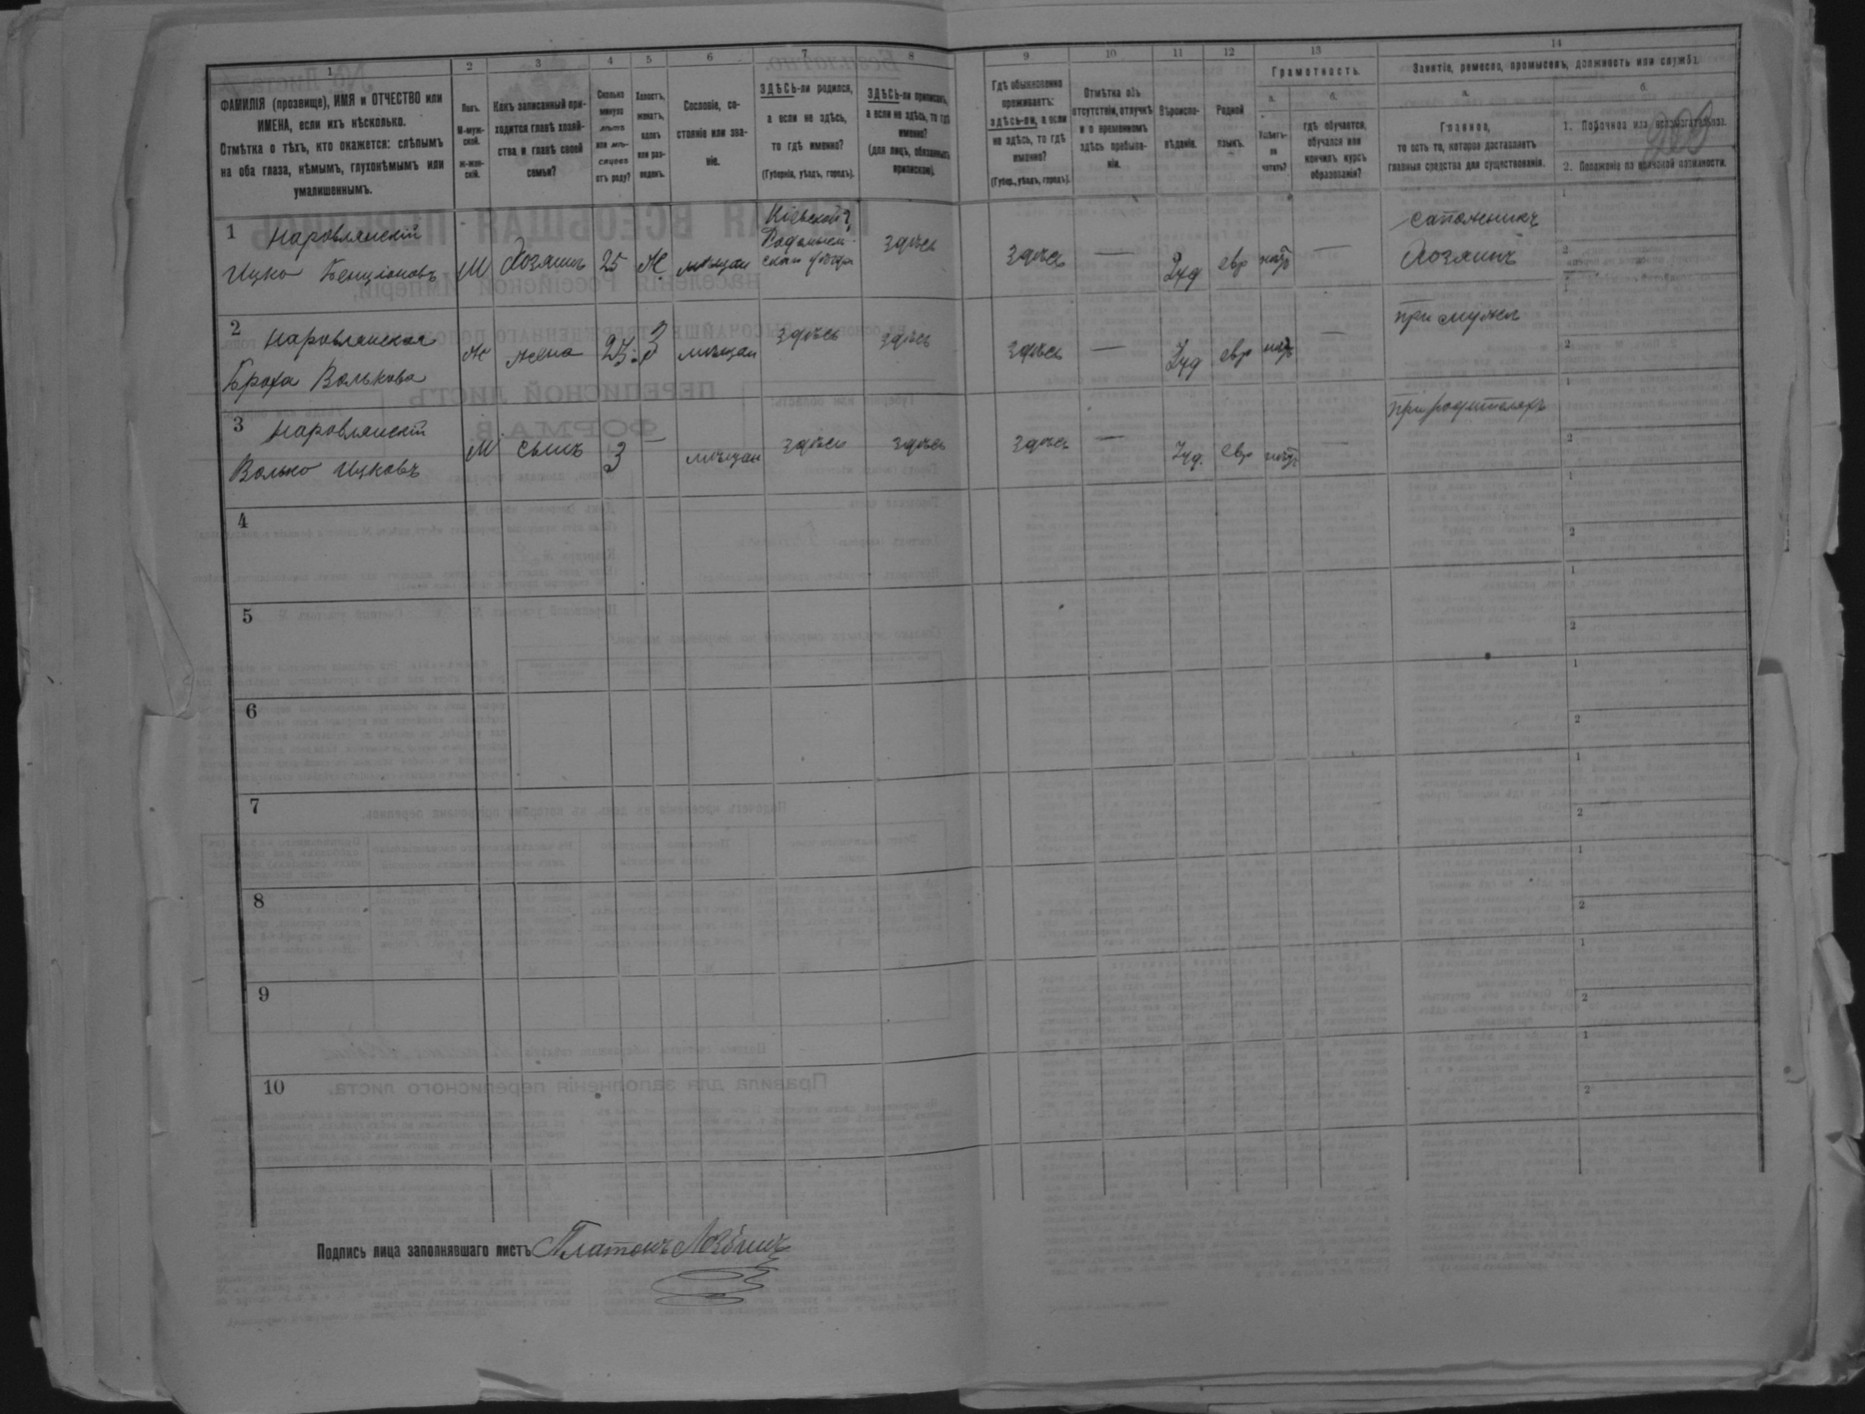 1 2 3 4 5 6 7 8 9 10 11 12 13 14
ФАМИЛІЯ (прозвище), ИМЯ и ОТЧЕСТВО или
ИМЕНА, если ихъ нѣсколько.
Отмѣтка о тѣхъ, кто окажется: слѣпымъ
на оба глаза, нѣмымъ, глухонѣмымъ или
умалишеннымъ.
Полъ.
М-муж-
ской.
Ж-жен-
скій.
Какъ записанный при-
ходится главѣ хозяй-
ства и главѣ своей
семьи?
Сколько
минуло
лѣтъ
или мѣ-
сяцевъ
отъ роду?
Холостъ,
женатъ,
вдовъ
или раз-
веденъ.
Сословіе, со-
стояніе или зва-
ніе.
ЗДѢСЬ-ли родился,
а если не здѣсь,
то гдѣ именно?
(Губернія, уѣздъ, городъ).
ЗДѢСЬ-ли приписанъ,
а если не здѣсь, то гдѣ
именно?
(для лицъ, обязанныхъ
припискою).
Гдѣ обыкновенно
проживаетъ:
здѣсь-ли, а если
не здѣсь, то гдѣ
именно?
(Губер., уѣздъ, городъ).
Отмѣтка объ
отсутствіи, отлучкѣ
и о временномъ
здѣсь пребыва-
ніи.
Вѣроиспо-
вѣданіе.
Родной
языкъ.
Грамотность.
а.
Умѣетъ-
ли
читать?
б.
гдѣ обучается,
обучался или
кончилъ курсъ
образованія?
Занятіе, ремесло, промыселъ, должность или служба.
а.
Главное,
то есть то, которое доставляетъ
главныя средства для существованія.
б.
1. Побочное или вспомогательное.
2. Положеніе по воинской повинности.
1 Наровлянскій
Ицко Бенціоновъ М Хозяинъ 25 Ж мѣщан Кіевской г.
Радомысл-
скаго уѣзда здѣсь здѣсь — Іуд евр нѣтъ — сапожникъ
Хозяинъ
2 Наровлянская
Броха Волькова Ж жена 27 З мѣщан здѣсь здѣсь здѣсь — Іуд евр нѣтъ — при мужѣ
3 Наровлянскій
Волько Ицковъ М сынъ 3 — мѣщан здѣсь здѣсь здѣсь — Іуд. евр нѣтъ — при родителяхъ
4
5
6
7
8
9
10
Подпись лица заполнявшаго листъ Платонъ